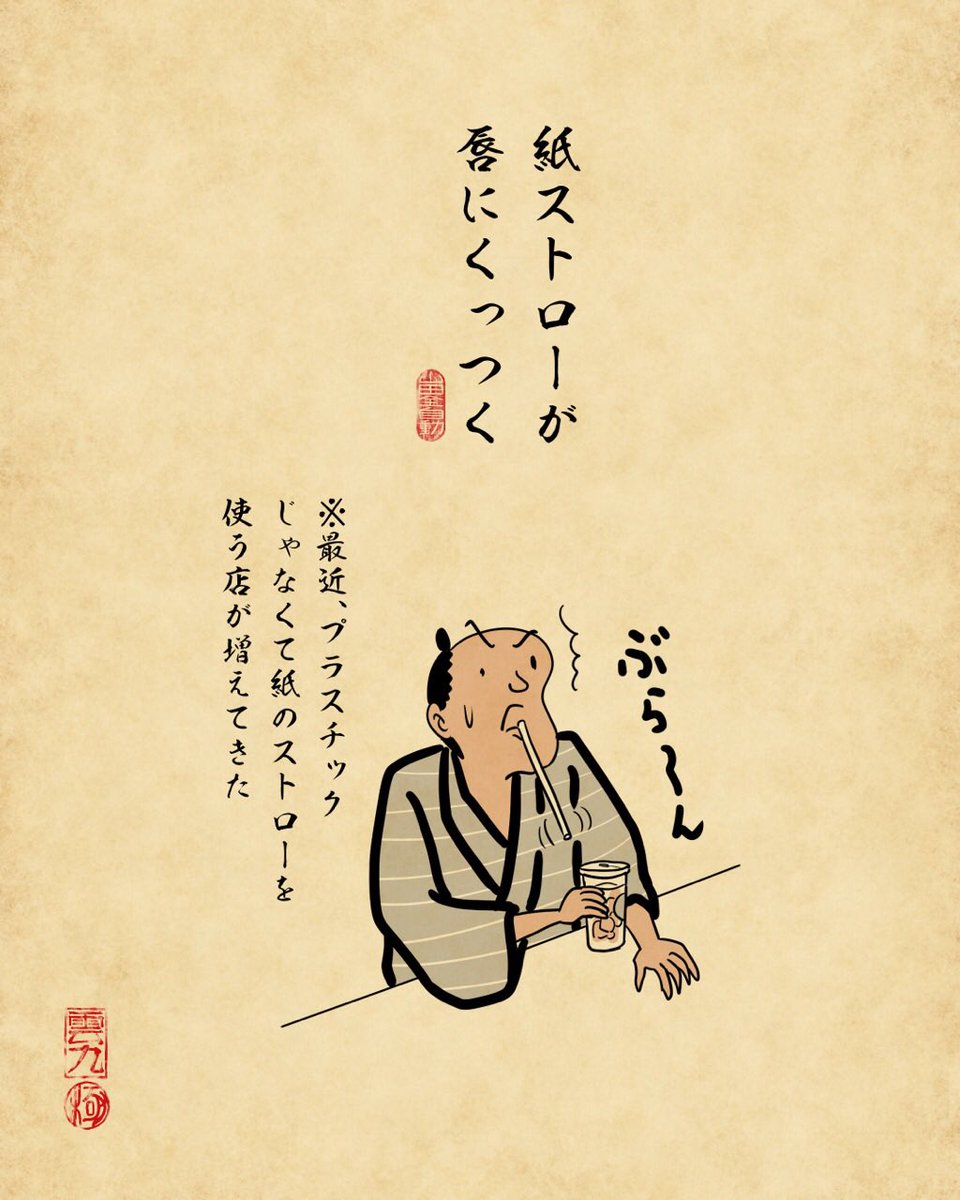 紙ストローが
唇にくっつく
※最近、プラスチック
じゃなくて紙のストローを
使う店が増えてきた
ぶら〜ん